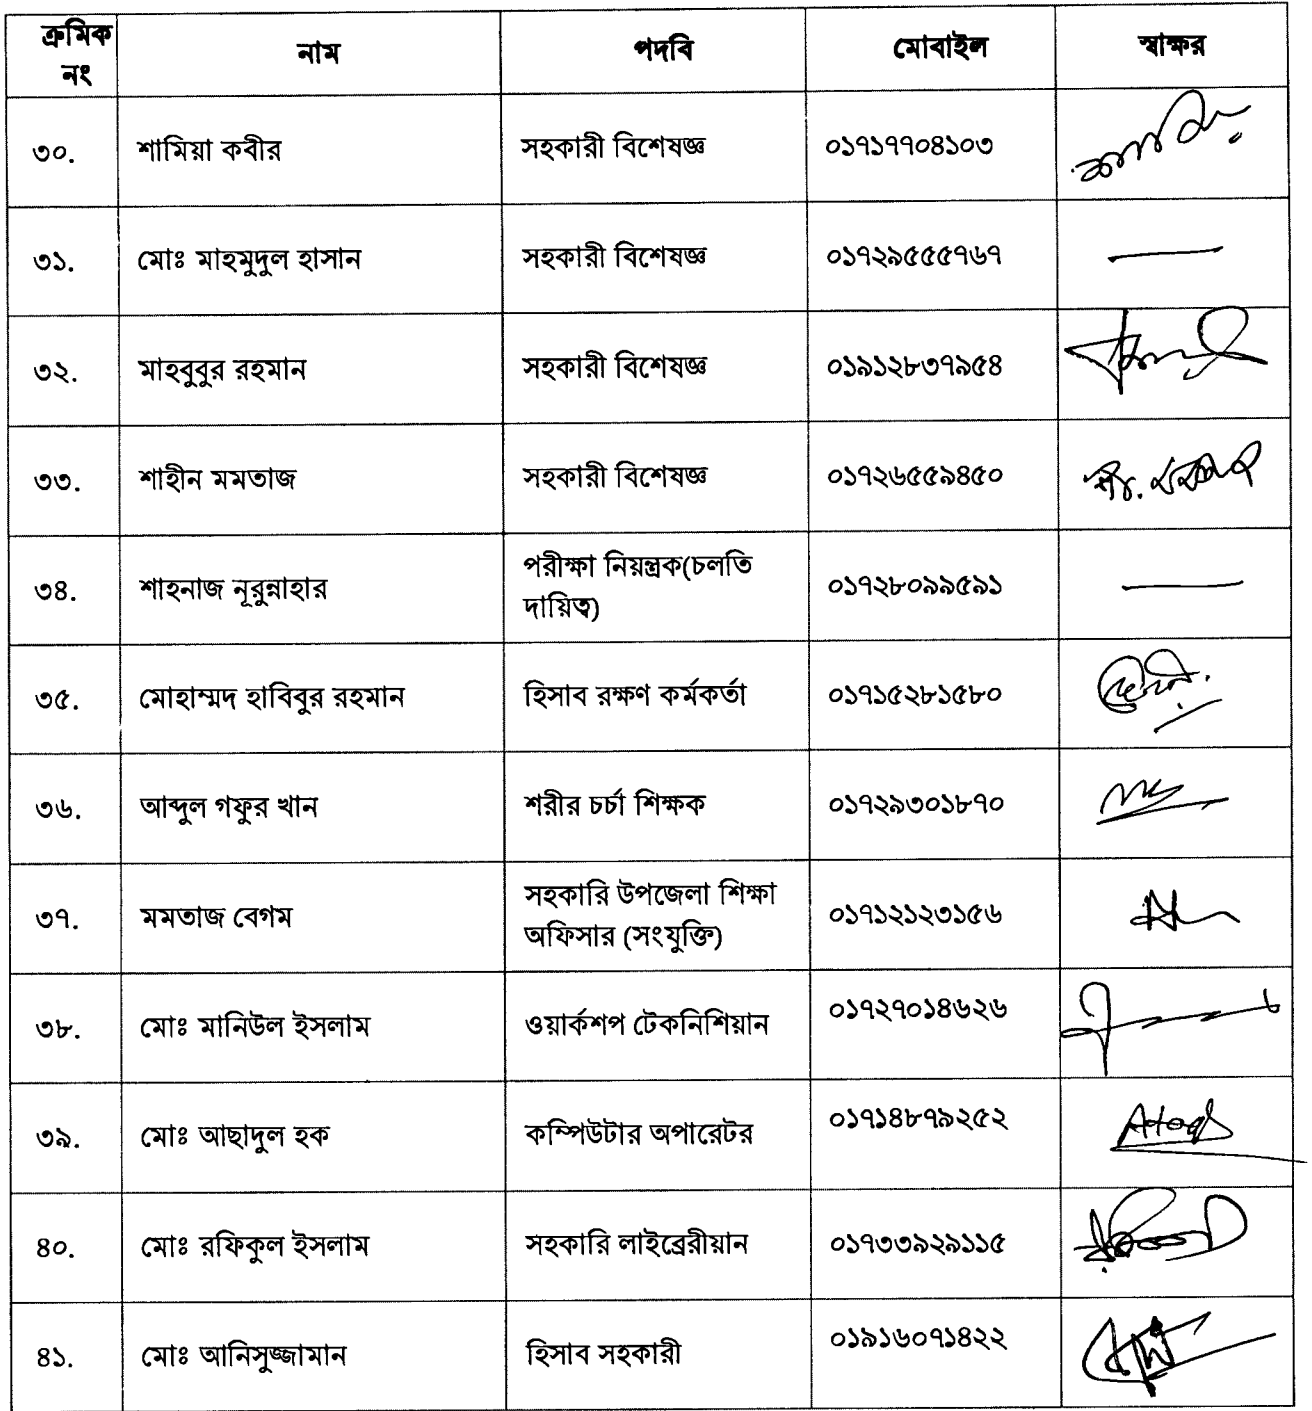 ক্রমিক নং নাম পদবি মোবাইল স্বাক্ষর
৩০. শামিয়া কবীর সহকারী বিশেষজ্ঞ ০১৭১৭৭০৪১০৩
৩১. মোঃ মাহমুদুল হাসান সহকারী বিশেষজ্ঞ ০১৭২৯৫৫৫৭৬৭ —
৩২. মাহবুবুর রহমান সহকারী বিশেষজ্ঞ ০১৯১২৮৩৭৯৫৪
৩৩. শাহীন মমতাজ সহকারী বিশেষজ্ঞ ০১৭২৬৫৫৯৪৫০
৩৪. শাহনাজ নূরুন্নাহার পরীক্ষা নিয়ন্ত্রক(চলতি দায়িত্ব) ০১৭২৮০৯৯৫৯১ —
৩৫. মোহাম্মদ হাবিবুর রহমান হিসাব রক্ষণ কর্মকর্তা ০১৭১৫২৮১৫৮০
৩৬. আব্দুল গফুর খান শরীর চর্চা শিক্ষক ০১৭২৯৩০১৮৭০
৩৭. মমতাজ বেগম সহকারি উপজেলা শিক্ষা অফিসার (সংযুক্তি) ০১৭১২১২৩১৫৬
৩৮. মোঃ মানিউল ইসলাম ওয়ার্কশপ টেকনিশিয়ান ০১৭২৭০১৪৬২৬
৩৯. মোঃ আছাদুল হক কম্পিউটার অপারেটর ০১৭১৪৮৭৯২৫২
৪০. মোঃ রফিকুল ইসলাম সহকারি লাইব্রেরীয়ান ০১৭৩৩৯২৯১১৫
৪১. মোঃ আনিসুজ্জামান হিসাব সহকারী ০১৯১৬০৭১৪২২